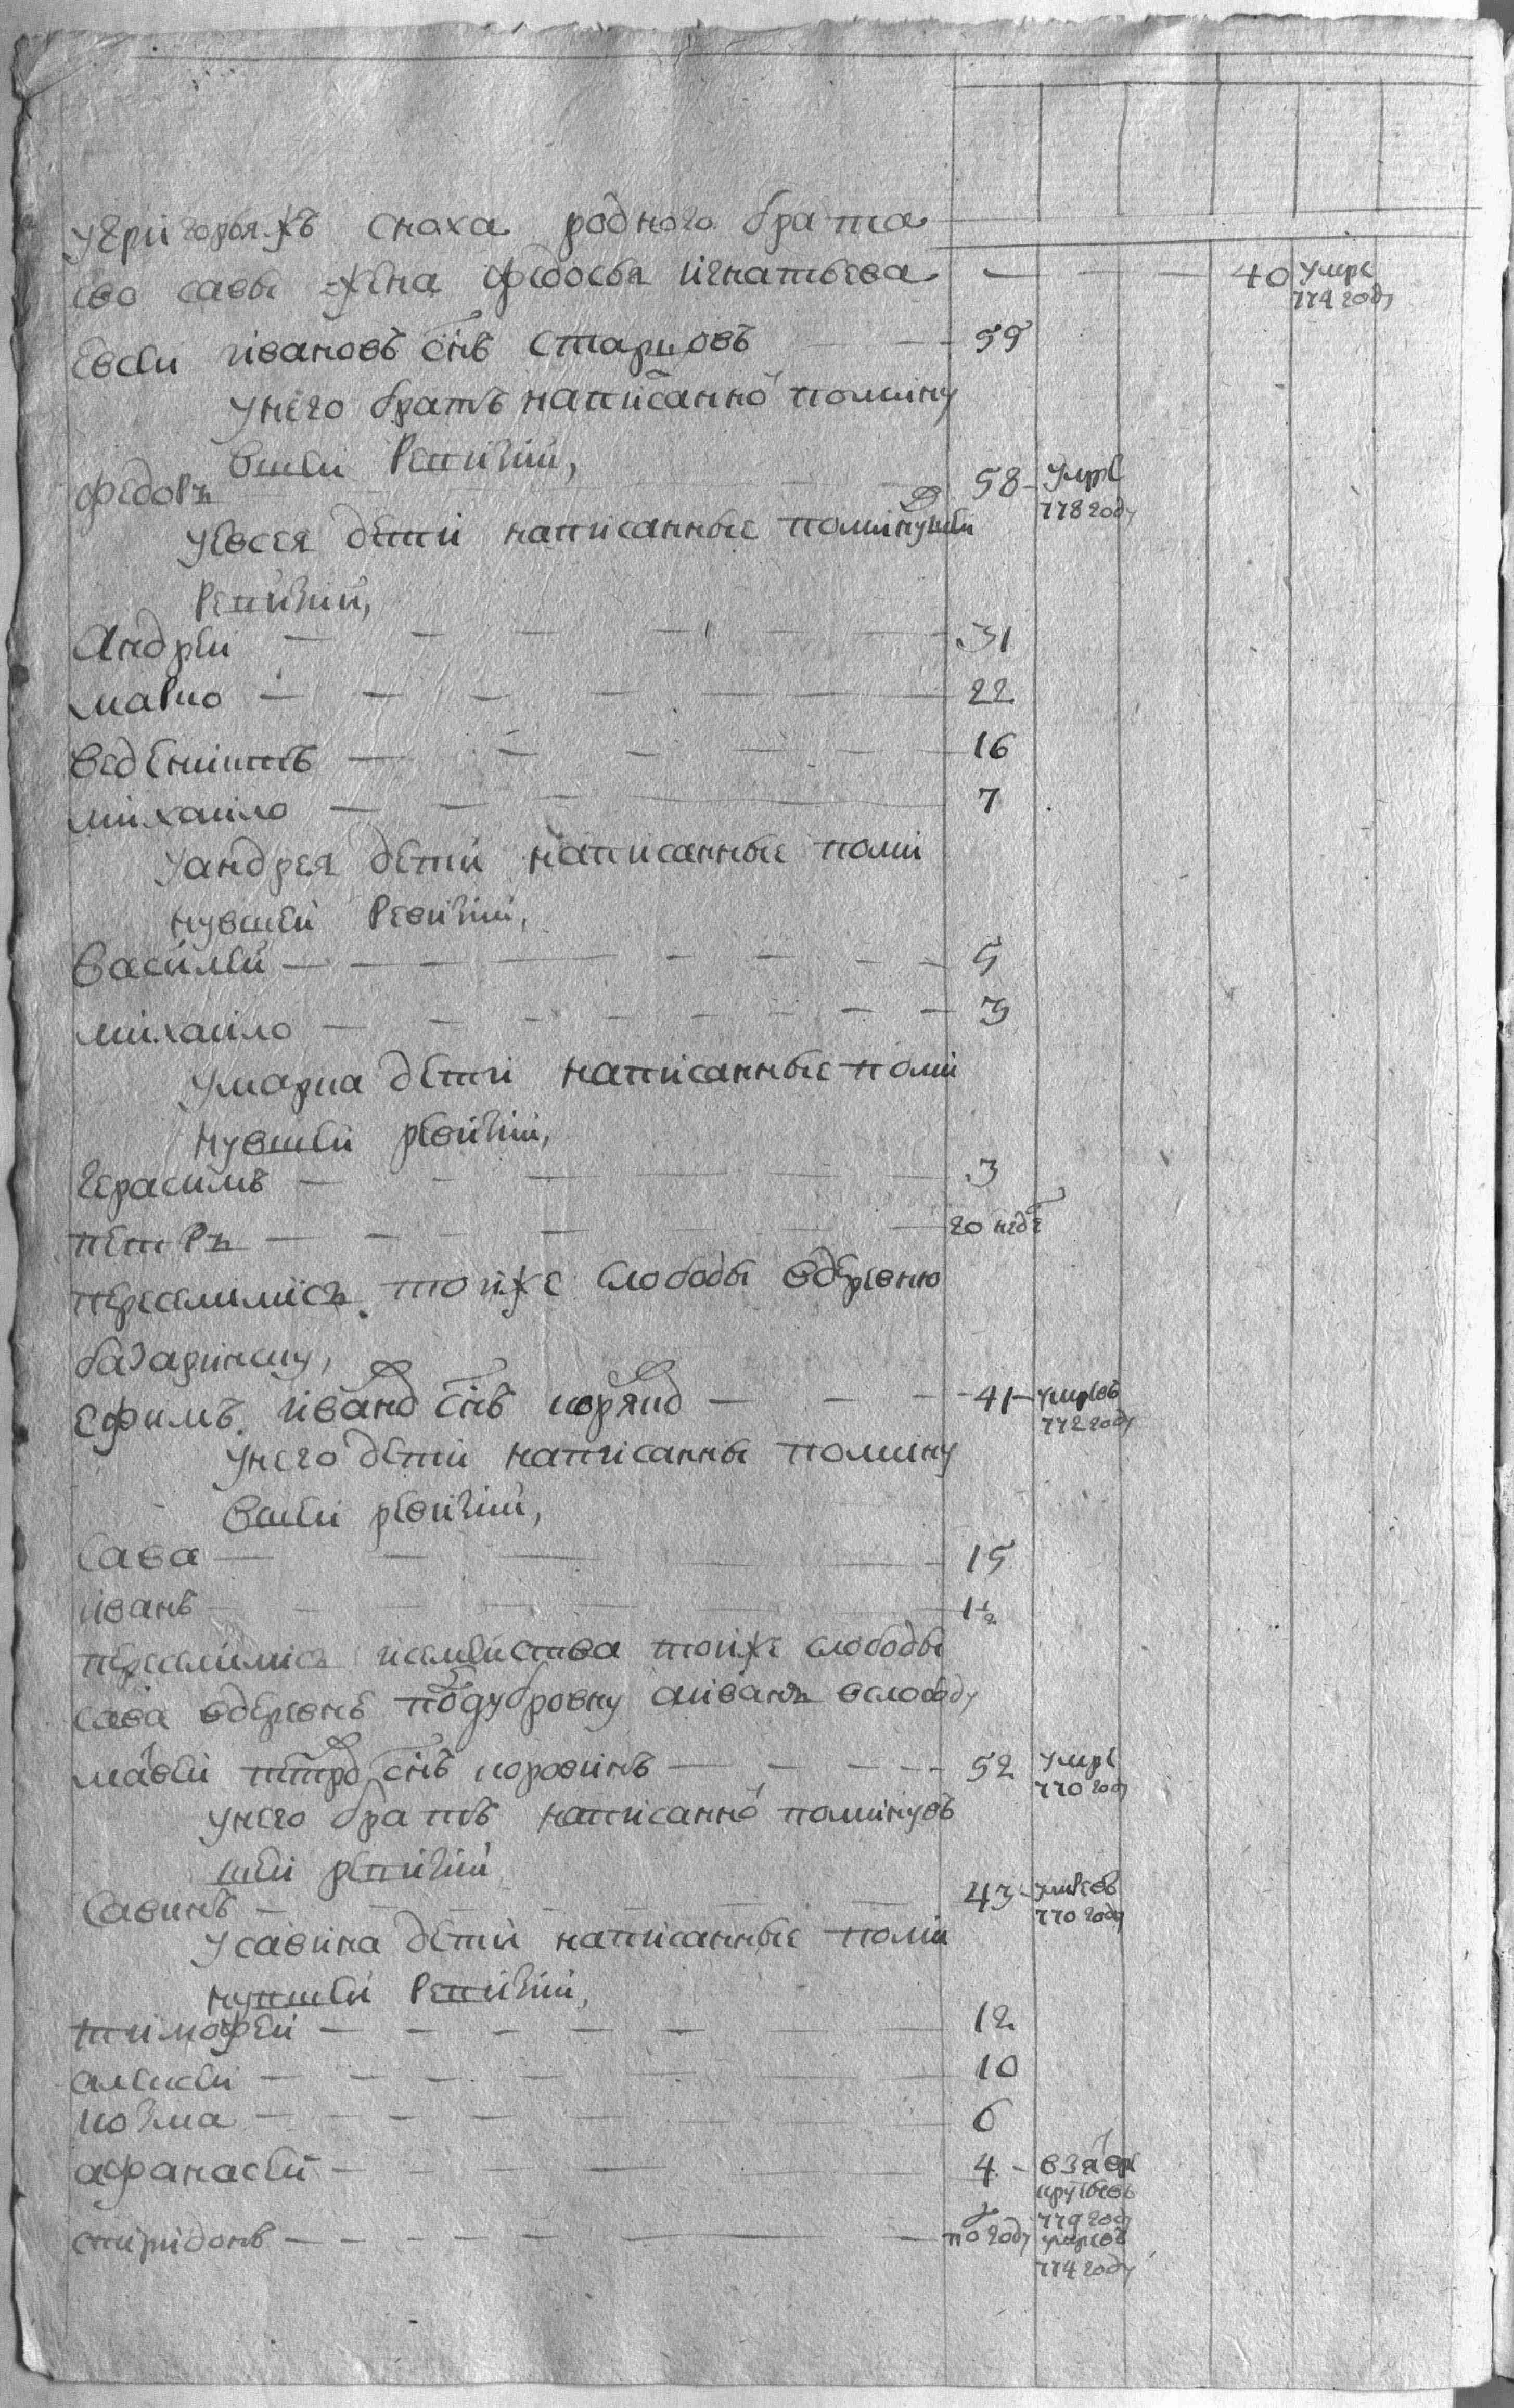 Угригорья жъ сноха родного брата
ево савы жена федосья игнатьева — — — 40 умре 774 году
Евсеи ивановъ снъ старцовъ — — 59
Унего братъ написанно помину
вшеи Ревизии,
федоръ — 58 — умре в 778 году
Уевсея дети написанные поминувшеи
Ревизии,
Андреи — — — — — 31
марко — — — — — 22
веденихтъ — — — — 16
михаило — — — 7
Уандрея дети написанные поми
нувшей Ревизии,
Василеи — — — — — — 5
михаило — — — — — — 3
Умарка дети написанные поми
нувшеи ревизии,
герасимъ — — — — 3
петръ — — — — 20 недѣ
переселились тоиже слободы вдеревню
базаринску,
Ефимъ ивановъ снъ коряко — — — 41 — умре въ 772 году
Унего дети написанны помину
вшеи ревизии,
Сава — — — 15
иванъ — — — — 1 1/2
переселились исемеиства тоиже слободы
сава вдеревнѣ подуброву аиванъ вслободу
матвеи петровъ снъ коровинъ — — — — 52 умре 770 году
Унего братъ написанно поминувъ
шеи ревизии
Савинъ — — — 43 — умре въ 770 году
Усавина дети написанные поми
нувшеи Ревизии,
тимофеи — — — — — 12
алексеи — — — — — 10
козма — — — — — 6
афанасеи — — — — 4 — взятъ в рекруты въ 779 году
спиридонъ — — — — — по году умре въ 774 году